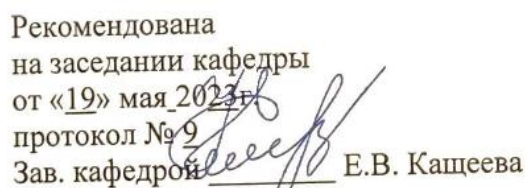 Рекомендована
на заседании кафедры
от «19» мая 2023г.
протокол № 9
Зав. кафедрой __________ Е.В. Кащеева